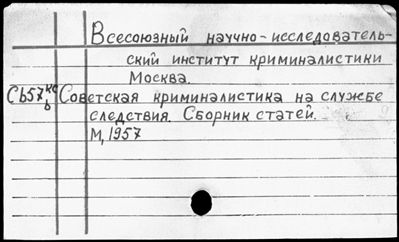 Всесоюзный научно-исследователь-
ский институт криминалистики
Москва.
Сб57 кс Советская криминалистика на службе
в следствия. Сборник статей.
М, 1957